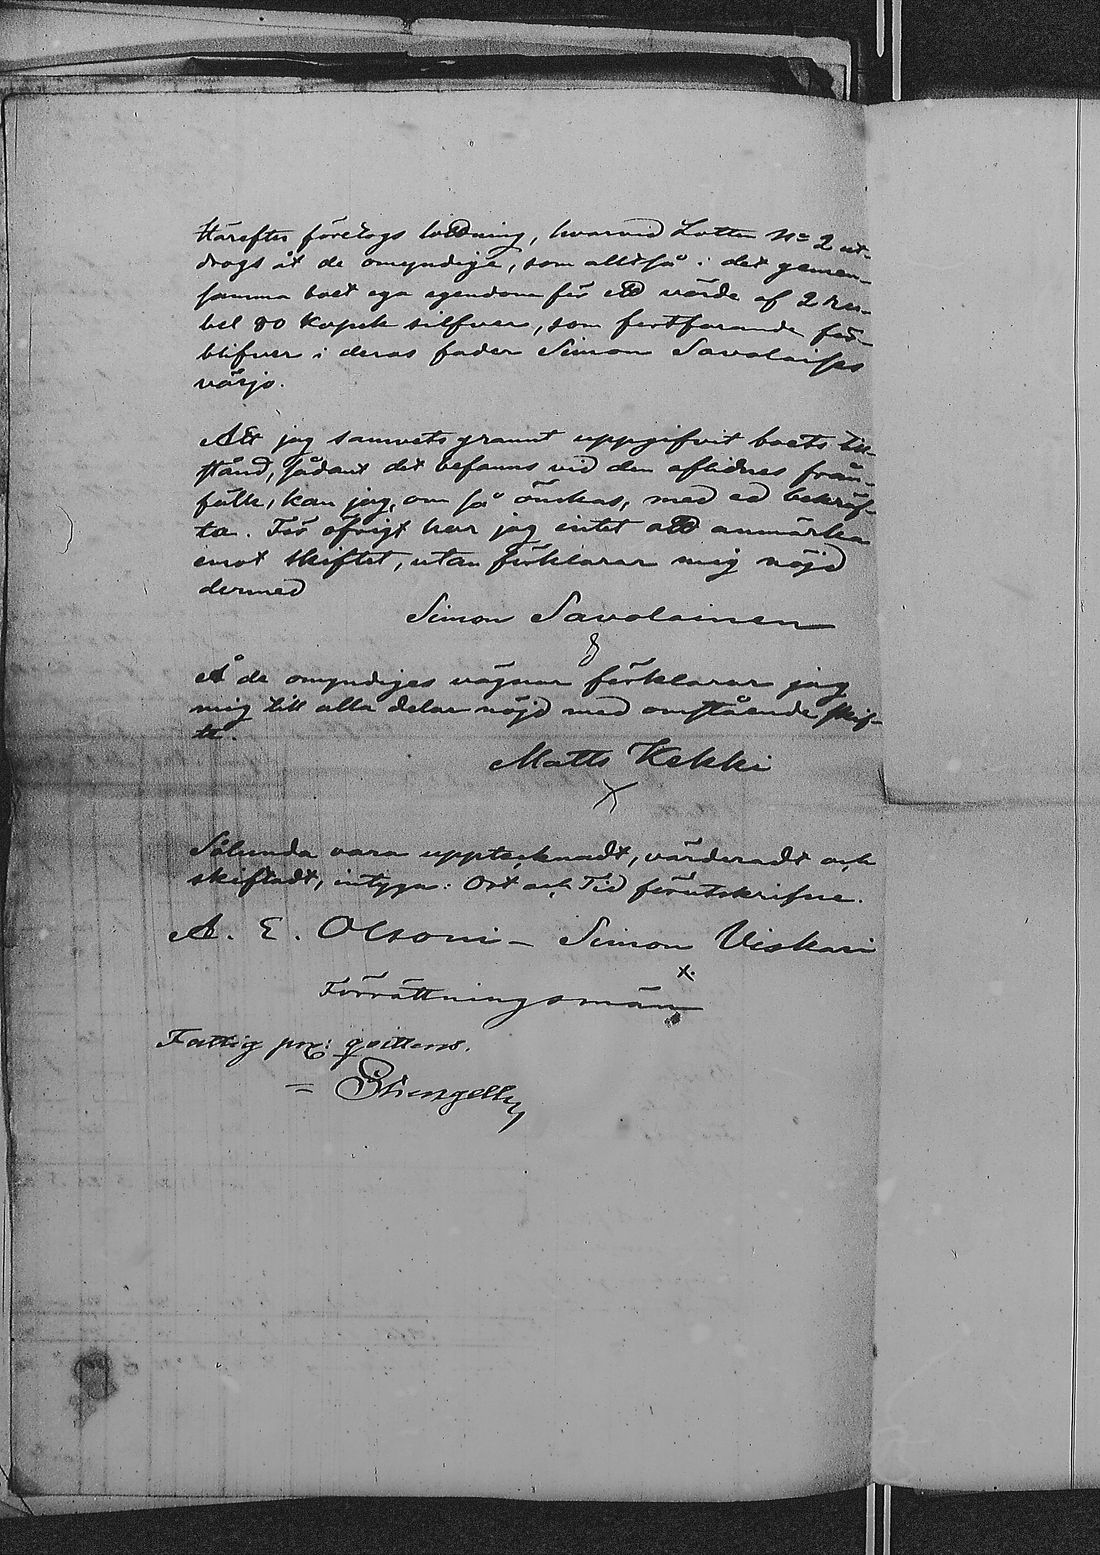 Härefter företogs lottning, hvarvid Lotten No 2 ut-
drogs åt de omyndige, som alltså i det gemen-
samma boet ega egendom för ett värde af 2 ru-
bel 80 kopek silfver, som fortfarande för-
blifver i deras fader Simon Savolaises
värjo.
Att jag samvetsgrannt uppgifvit boets till-
stånd, sådant det befanns vid den aflidnes från-
fälle, kan jag, om så önskas, med ed bekräf-
ta. För öfrigt har jag intet att anmärka
emot skiftet, utan förklarar mig nöjd
dermed
Simon Savolainen
Å de omyndiges vägnar förklarar jag
mig till alla delar nöjd med omstående skif-
te.
Matts Kekki
X
Sålunda vara upptecknadt, värderadt och
skiftadt, intyga: Ort och Tid förutskrifne.
A. E. Olsoni – Simon Viskari
X.
Förrättningsmän
Fattig prc: qvitteras.